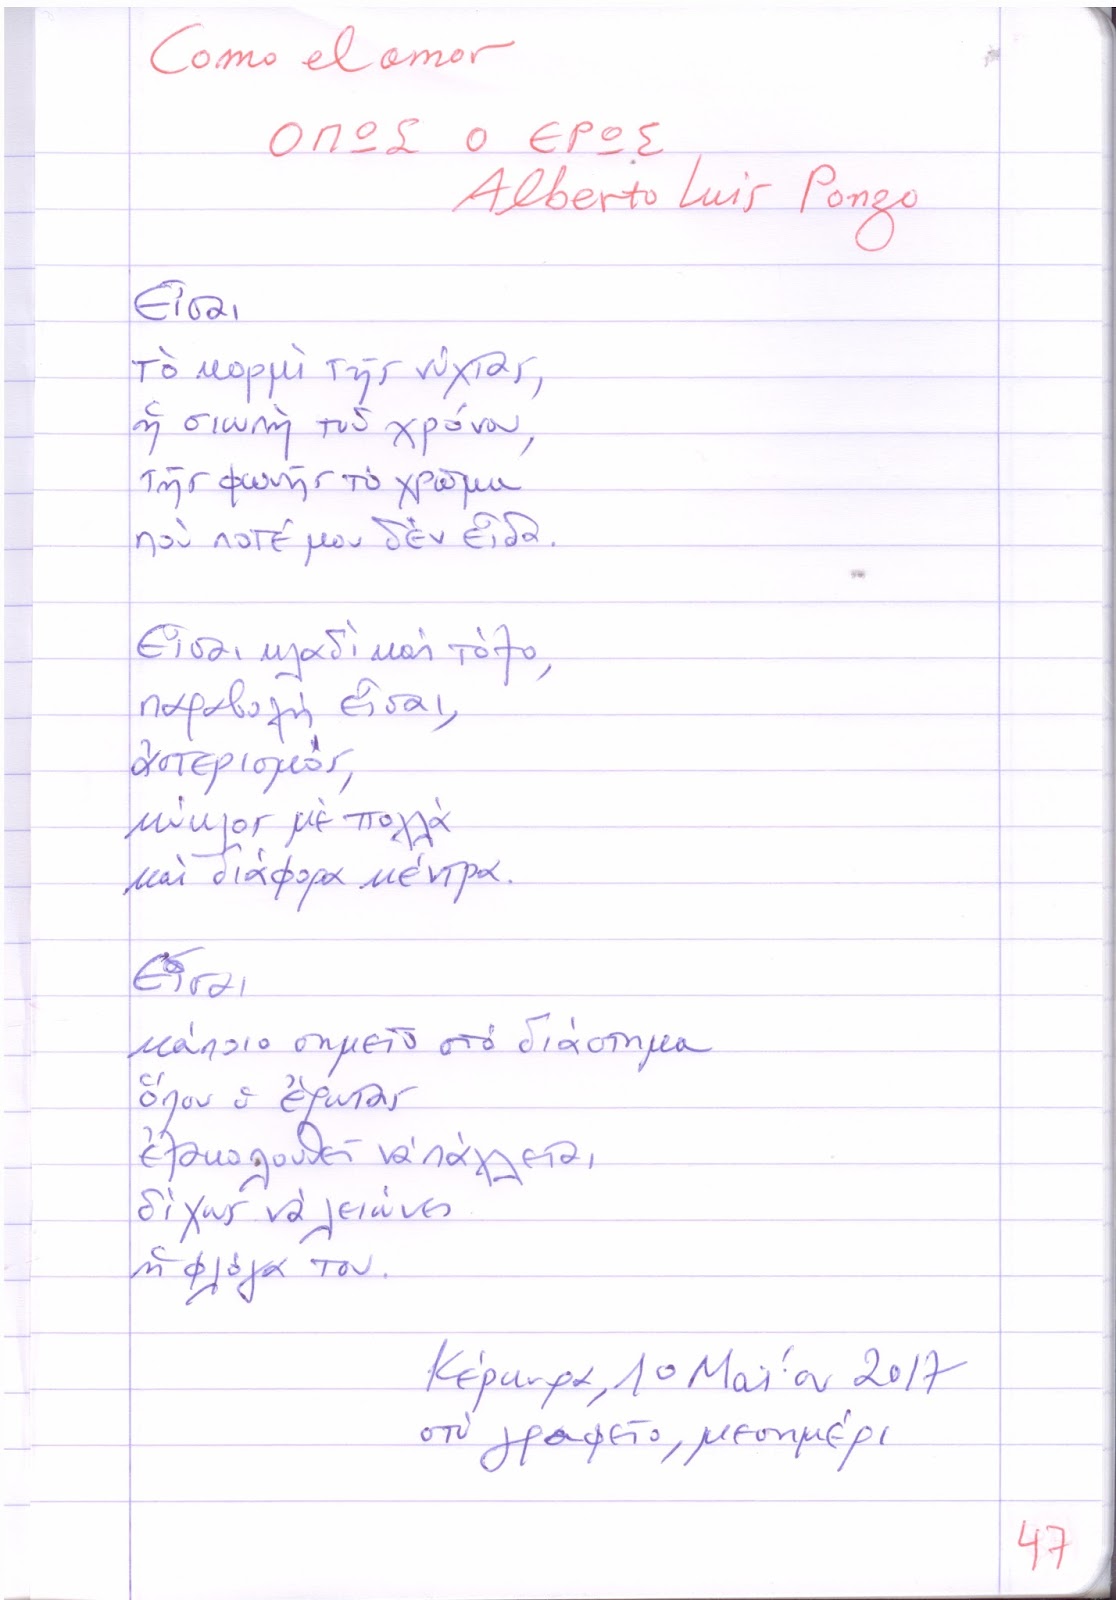 Como el amor
ΟΠΩΣ Ο ΕΡΩΣ
Alberto Luis Ponzo
Εἶσαι
τὸ κορμὶ τῆς νύχτας,
ἡ σιωπὴ τοῦ χρόνου,
τῆς φωνῆς τὸ χρῶμα
ποὺ ποτέ μου δὲν εἶδα.
Εἶσαι κλαδὶ καὶ τόξο,
παραβολὴ εἶσαι,
ἀστερισμός,
κύκλος μὲ πολλὰ
καὶ διάφορα κέντρα.
Εἶσαι
κάποιο σημεῖο στὸ διάστημα
ὅπου ὁ ἔρωτας
ἐξακολουθεῖ νὰ πάλλεται
δίχως νὰ λειώνει
ἡ φλόγα του.
Κέρκυρα, 10 Μαΐου 2017
στὸ γραφεῖο, μεσημέρι
47